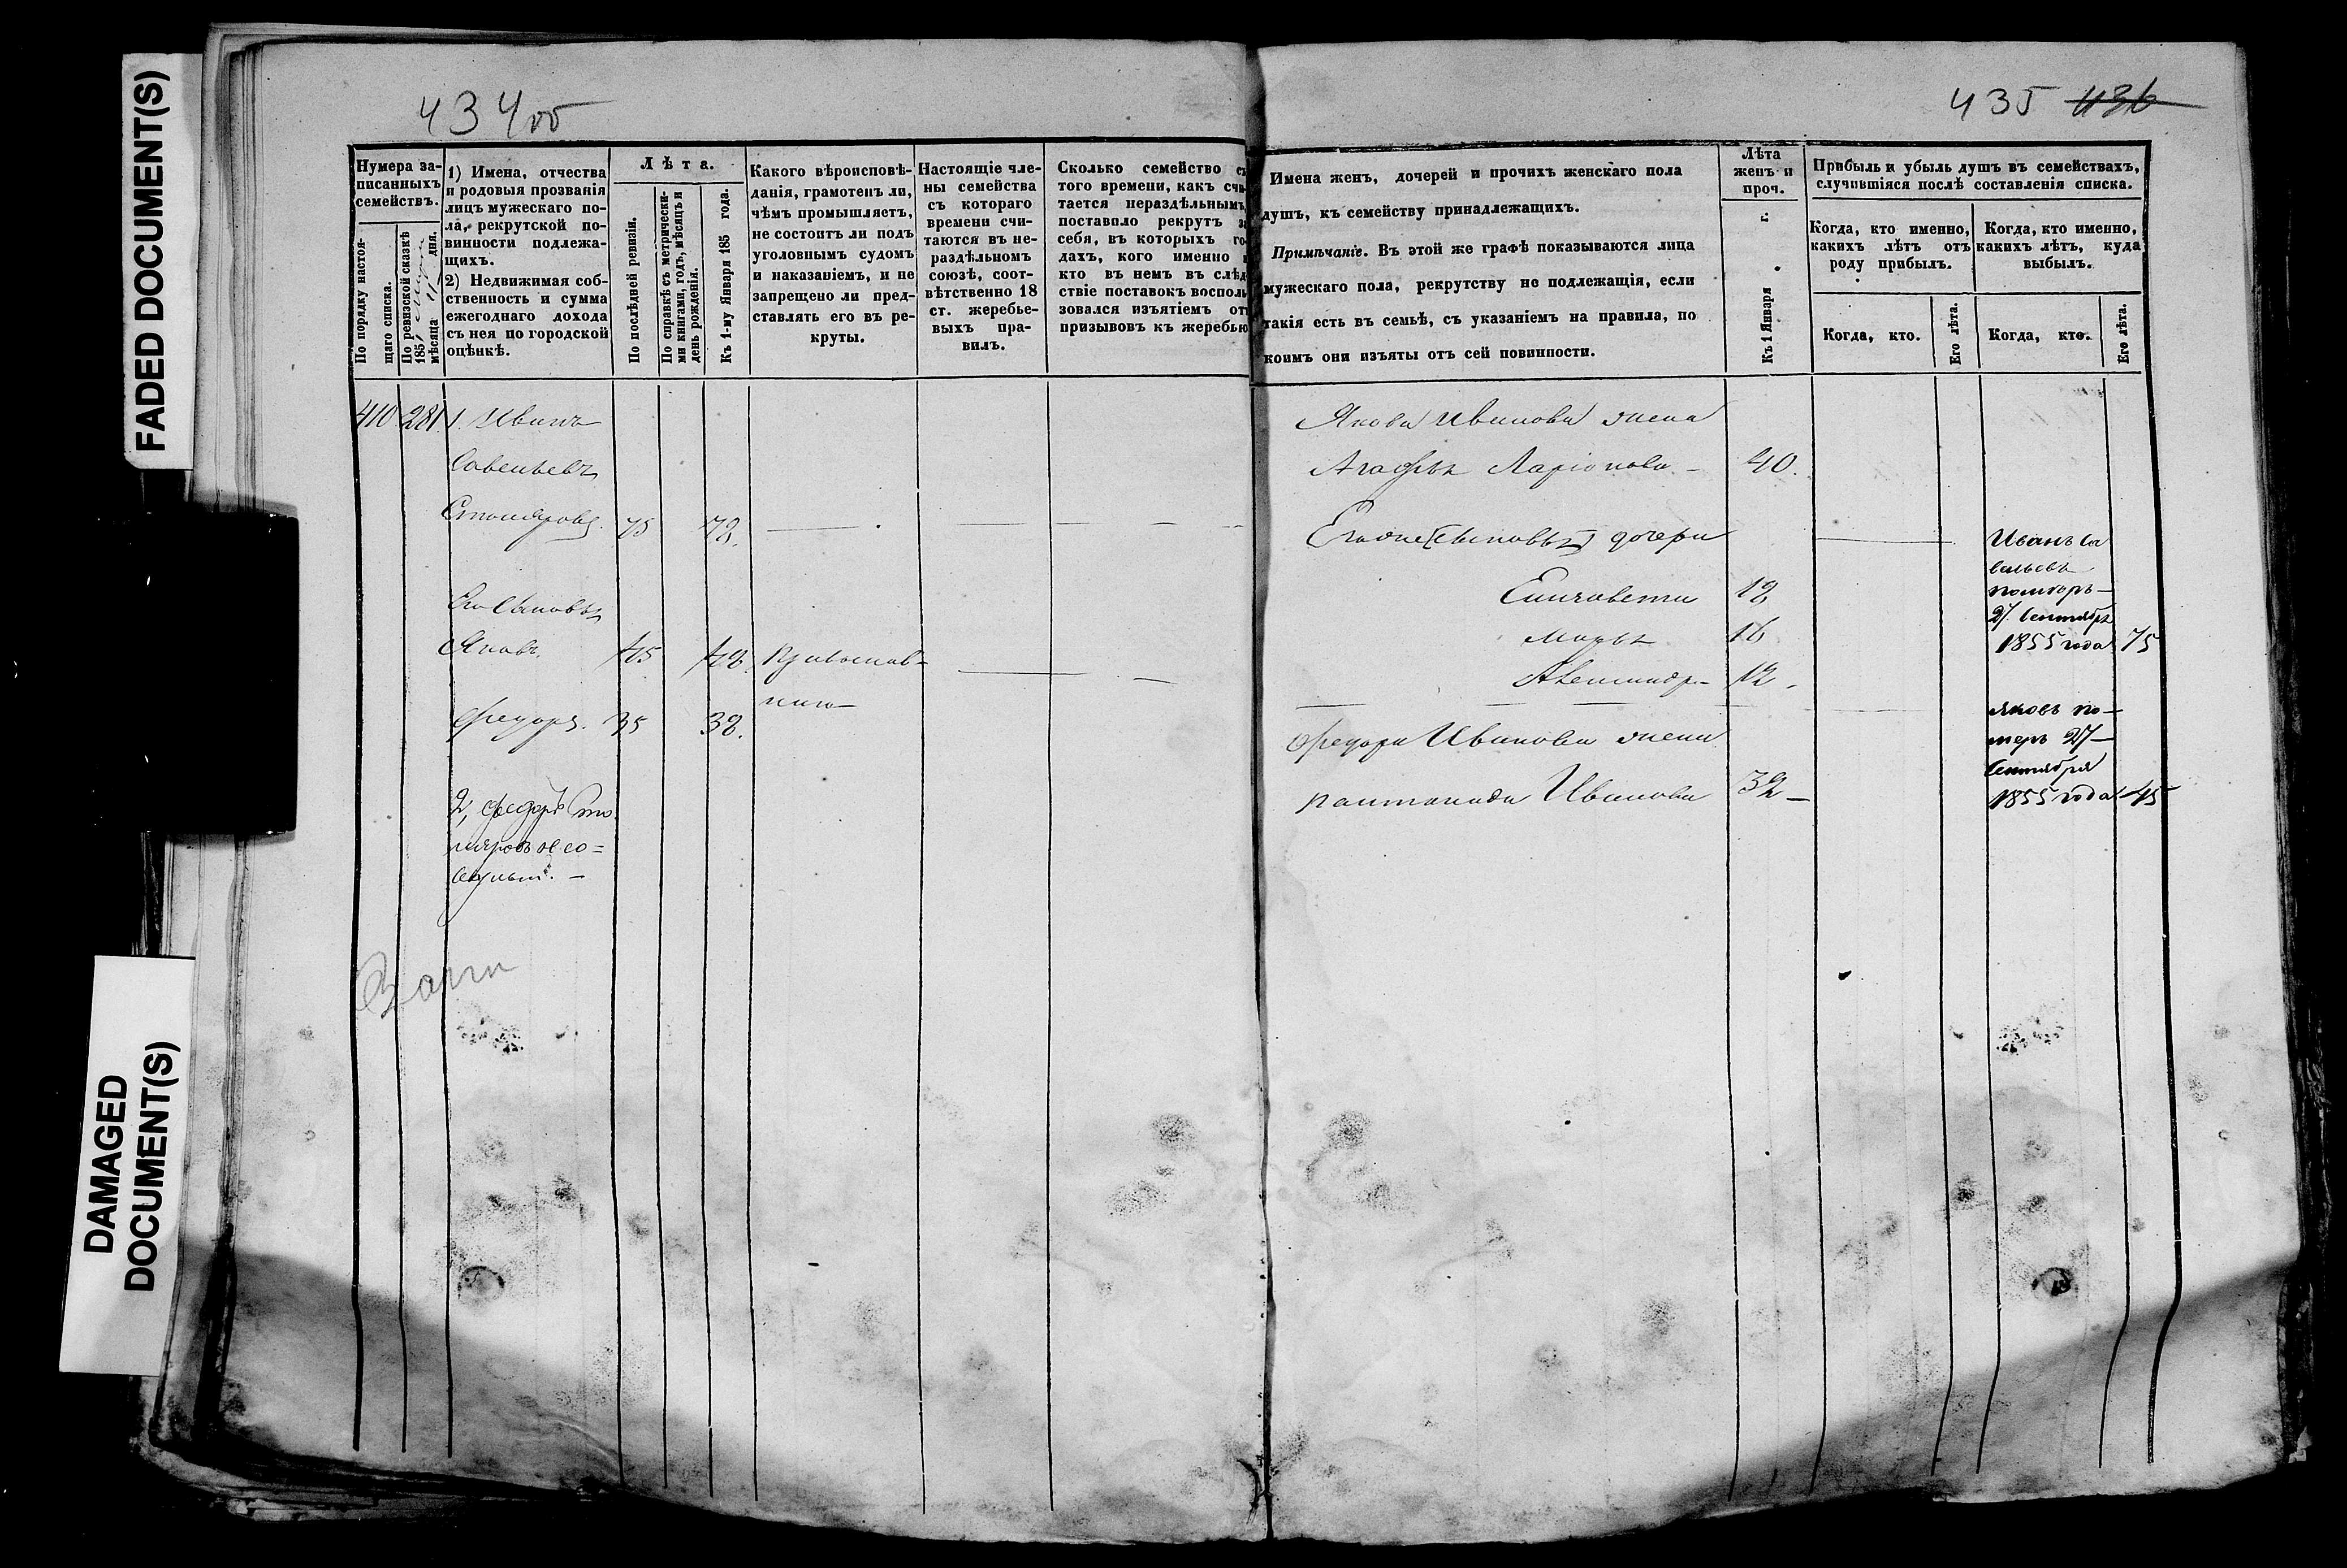 FADED DOCUMENT(S)
DAMAGED
DOCUMENT(S)
434об
Нумера за-
писанныхъ
семействъ.
По порядку настоя-
щаго списка.
По ревизской сказкѣ
185
мѣсяца дня.
1) Имена, отчества
и родовыя прозванія
лицъ мужескаго по-
ла, рекрутской по-
винности подлежа-
щихъ.
2) Недвижимая соб-
ственность и сумма
ежегоднаго дохода
съ нея по городской
оцѣнкѣ.
Лѣта.
По послѣдней ревизіи.
По справкѣ съ метрически-
ми книгами, годъ, мѣсяцъ и
день рожденія.
Къ 1-му Января 185 года.
Какого вѣроисповѣ-
данія, грамотенъ ли,
чѣмъ промышляетъ,
не состоитъ ли подъ
уголовнымъ судомъ
и наказаніемъ, и не
запрещено ли пред-
ставлять его въ ре-
круты.
Настоящіе чле-
ны семейства
съ котораго
времени счи-
таются въ не-
раздѣльномъ
союзѣ, соот-
вѣтственно 18
ст. жеребье-
выхъ пра-
вилъ.
Сколько семейство съ
того времени, какъ счи-
тается нераздѣльнымъ,
поставило рекрутъ за
себя, въ которыхъ го-
дахъ, кого именно и
кто въ немъ въ слѣд-
ствіе поставокъ восполь-
зовался изъятіемъ отъ
призывовъ къ жеребью
410. 281. 1. Иванъ
Савельевъ
Столяровъ. 75 78.
Его Сыновья
Яковъ. 45 48. Православ-
наго
Федоръ. 35 38.
2, Федоръ Сто
ляровъ
435 436
Имена женъ, дочерей и прочихъ женскаго пола
душъ, къ семейству принадлежащихъ.
Примѣчаніе. Въ этой же графѣ показываются лица
мужескаго пола, рекрутству не подлежащія, если
такія есть въ семьѣ, съ указаніемъ на правила, по
коимъ они изъяты отъ сей повинности.
Лѣта
женъ и
проч.
Къ 1 Января г.
Прибыль и убыль душъ въ семействахъ,
случившіяся послѣ составленія списка.
Когда, кто именно,
какихъ лѣтъ отъ
роду прибылъ.
Когда, кто именно,
какихъ лѣтъ, куда
выбылъ.
Когда, кто.
Его лѣта.
Когда, кто.
Его лѣта.
Якова Иванова жена
Агафья Ларіонова 40.
дочери
Елизавета 18
Марья 16
Александра 12
Федора Иванова жена
Иванова 32
Иванъ Са
вельевъ
померъ
27 Сентября
1855 года 75
Яковъ по-
меръ 27
Сентября
1855 года 45